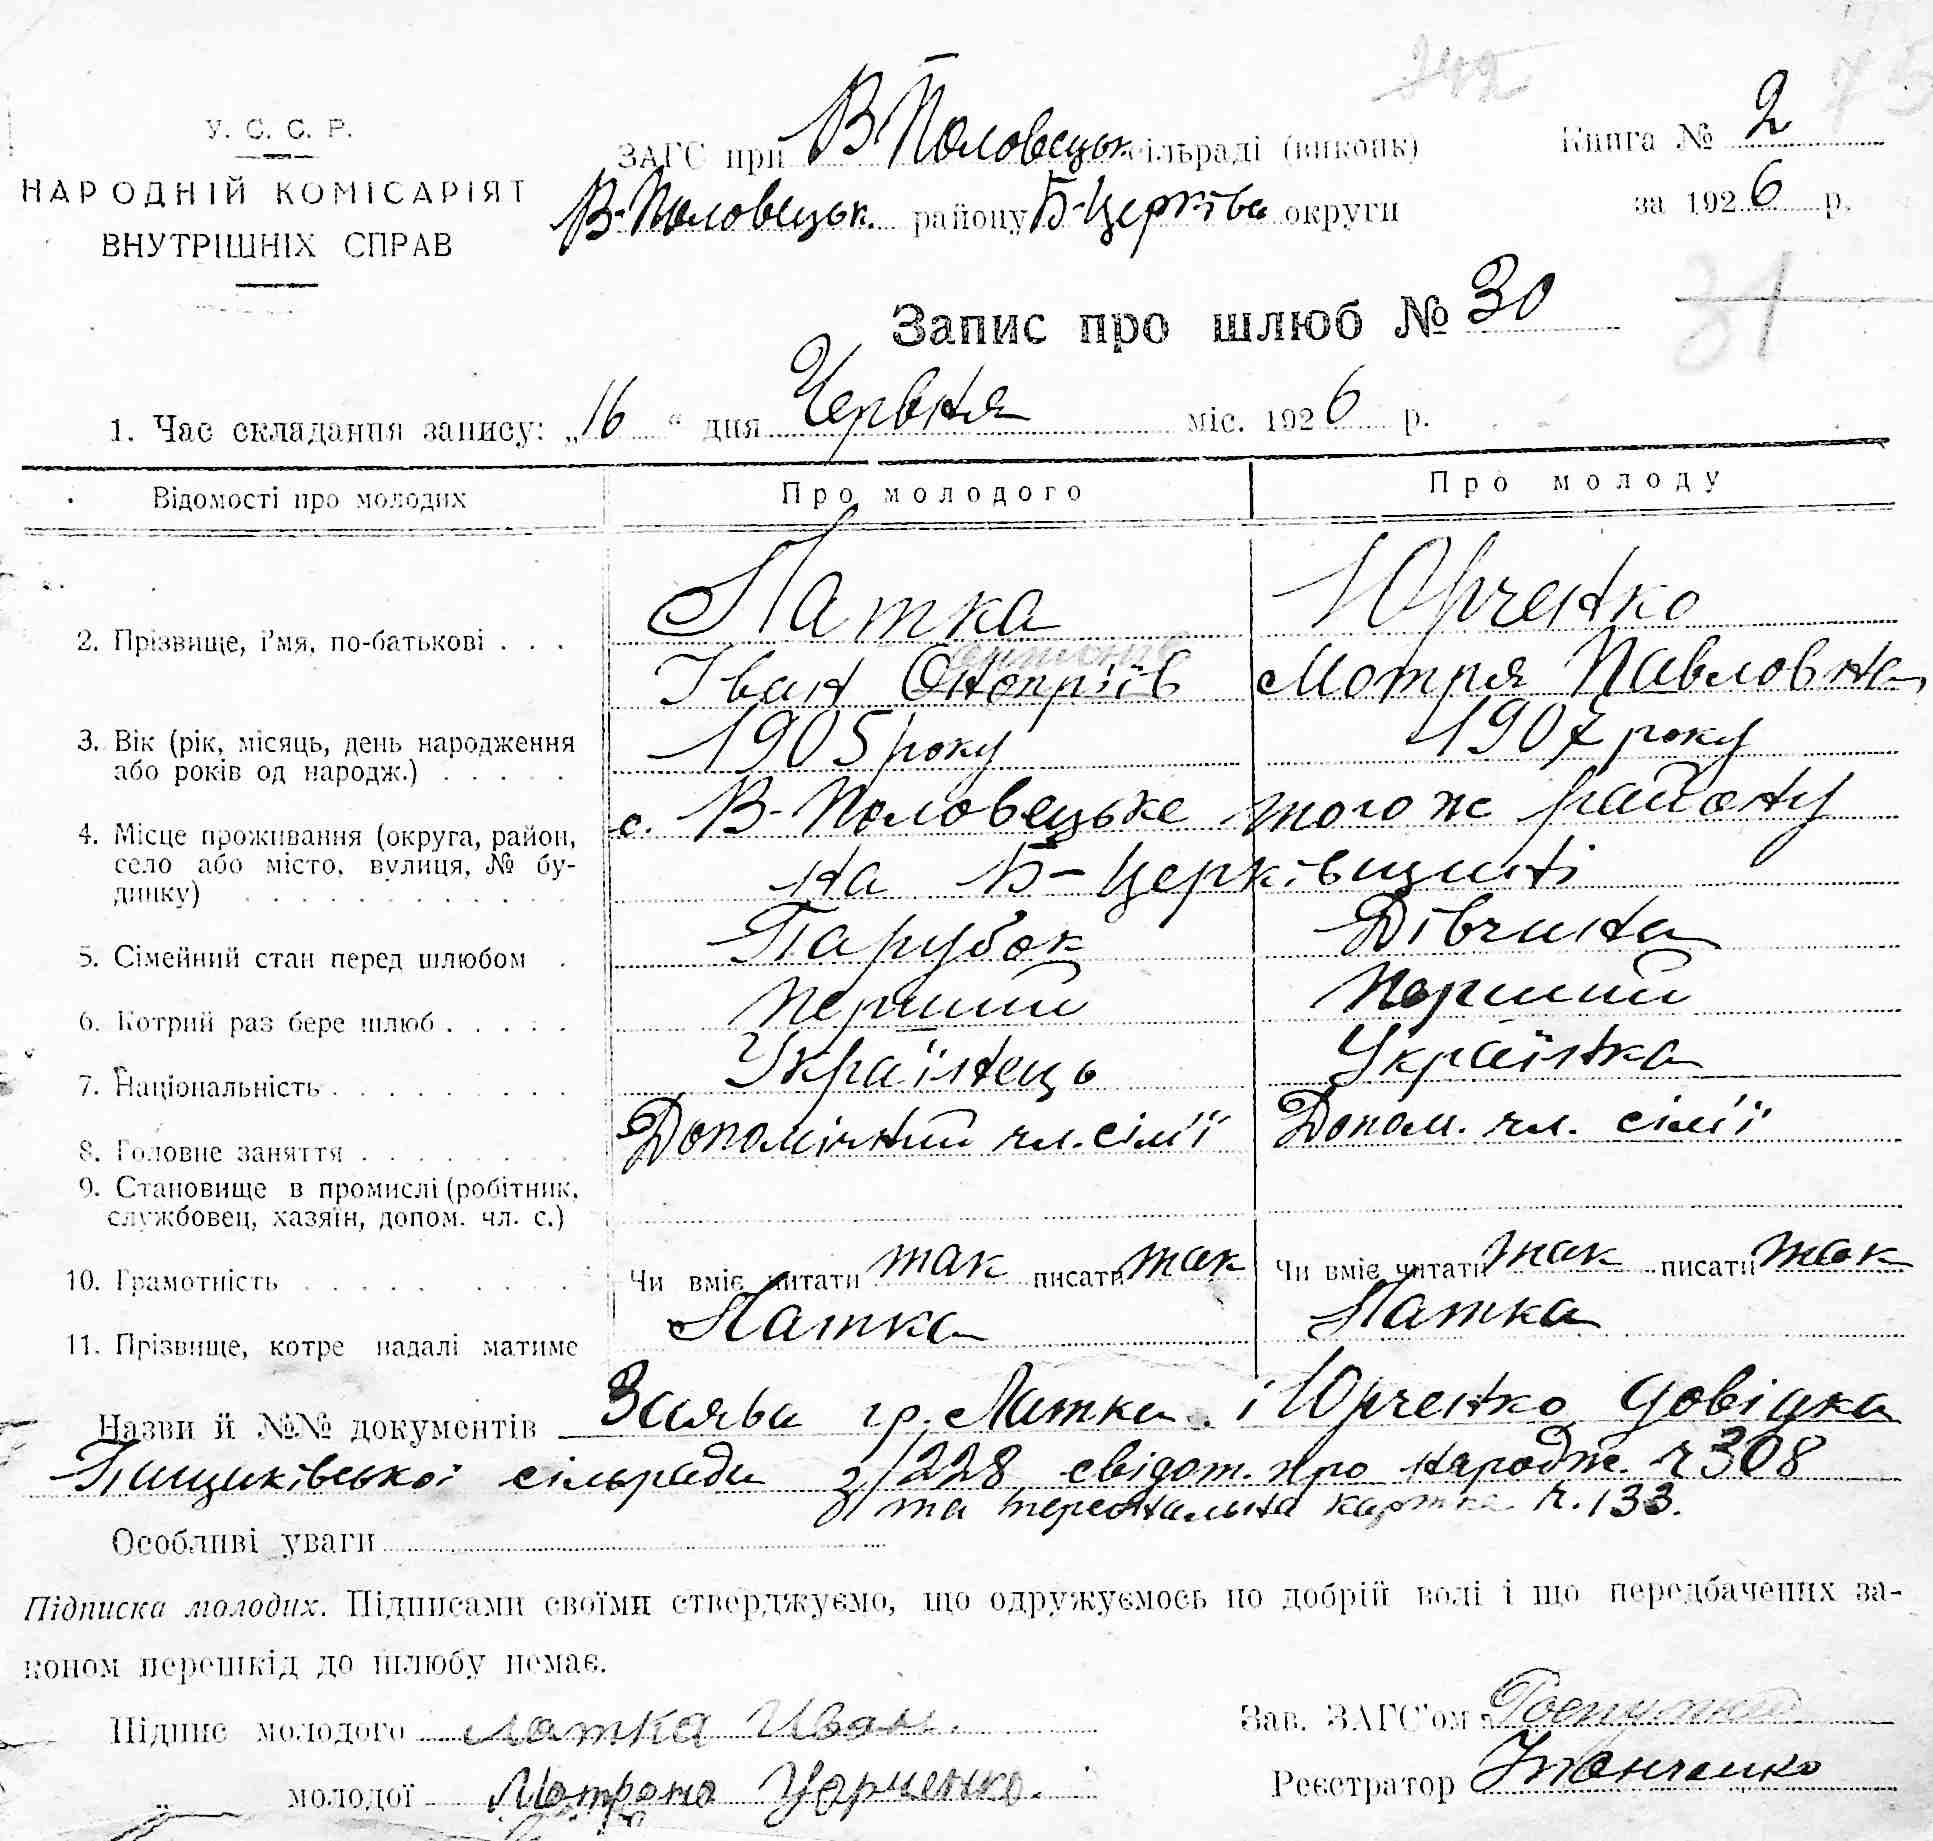 У. С. С. Р.
НАРОДНІЙ КОМІСАРІЯТ
ВНУТРІШНІХ СПРАВ
ЗАГС при В Половецьк сільраді (виконк)
В-Половецьк. району Б-Церківс округи
Книга № 2
за 1926 р.
Запис про шлюб № 30
31
1. Час складання запису: „16“ дня Червня міс. 1926 р.
Відомості про молодих Про молодого Про молоду
2. Прізвище, і'мя, по-батькові . . . Латка Юрченко
Іван Оноприїв Мотря Павловна
3. Вік (рік, місяць, день народження або років од народж.) 1905 року 1907 року
4. Місце проживання (округа, район, село або місто, вулиця, № будинку) с. В-Половецьке того ж району
на Б-Церківщині
5. Сімейний стан перед шлюбом Парубок Дівчина
6. Котрий раз бере шлюб Перший Перший
7. Національність Українець Українка
8. Головне заняття Допомічний чл. сім'ї Допом. чл. сім'ї
9. Становище в промислі (робітник, службовец, хазяїн, допом. чл. с.)
10. Грамотність Чи вміє читати так писати так Чи вміє читати так писати так
11. Прізвище, котре надалі матиме Латка Латка
Назви й №№ документів Заява гр. Латка і Юрченко довідка
Пищиківської сільради з/228 свідот. про народж. ч 308
та персональна картка ч. 133.
Особливі уваги
Підписка молодих. Підписами своїми стверджуємо, що одружуємось по добрій волі і що передбачених за-
коном перешкід до шлюбу немає.
Підпис молодого Латка Иван.
Зав. ЗАГС'ом
„ молодої Мотрона Юрченко.
Реєстратор